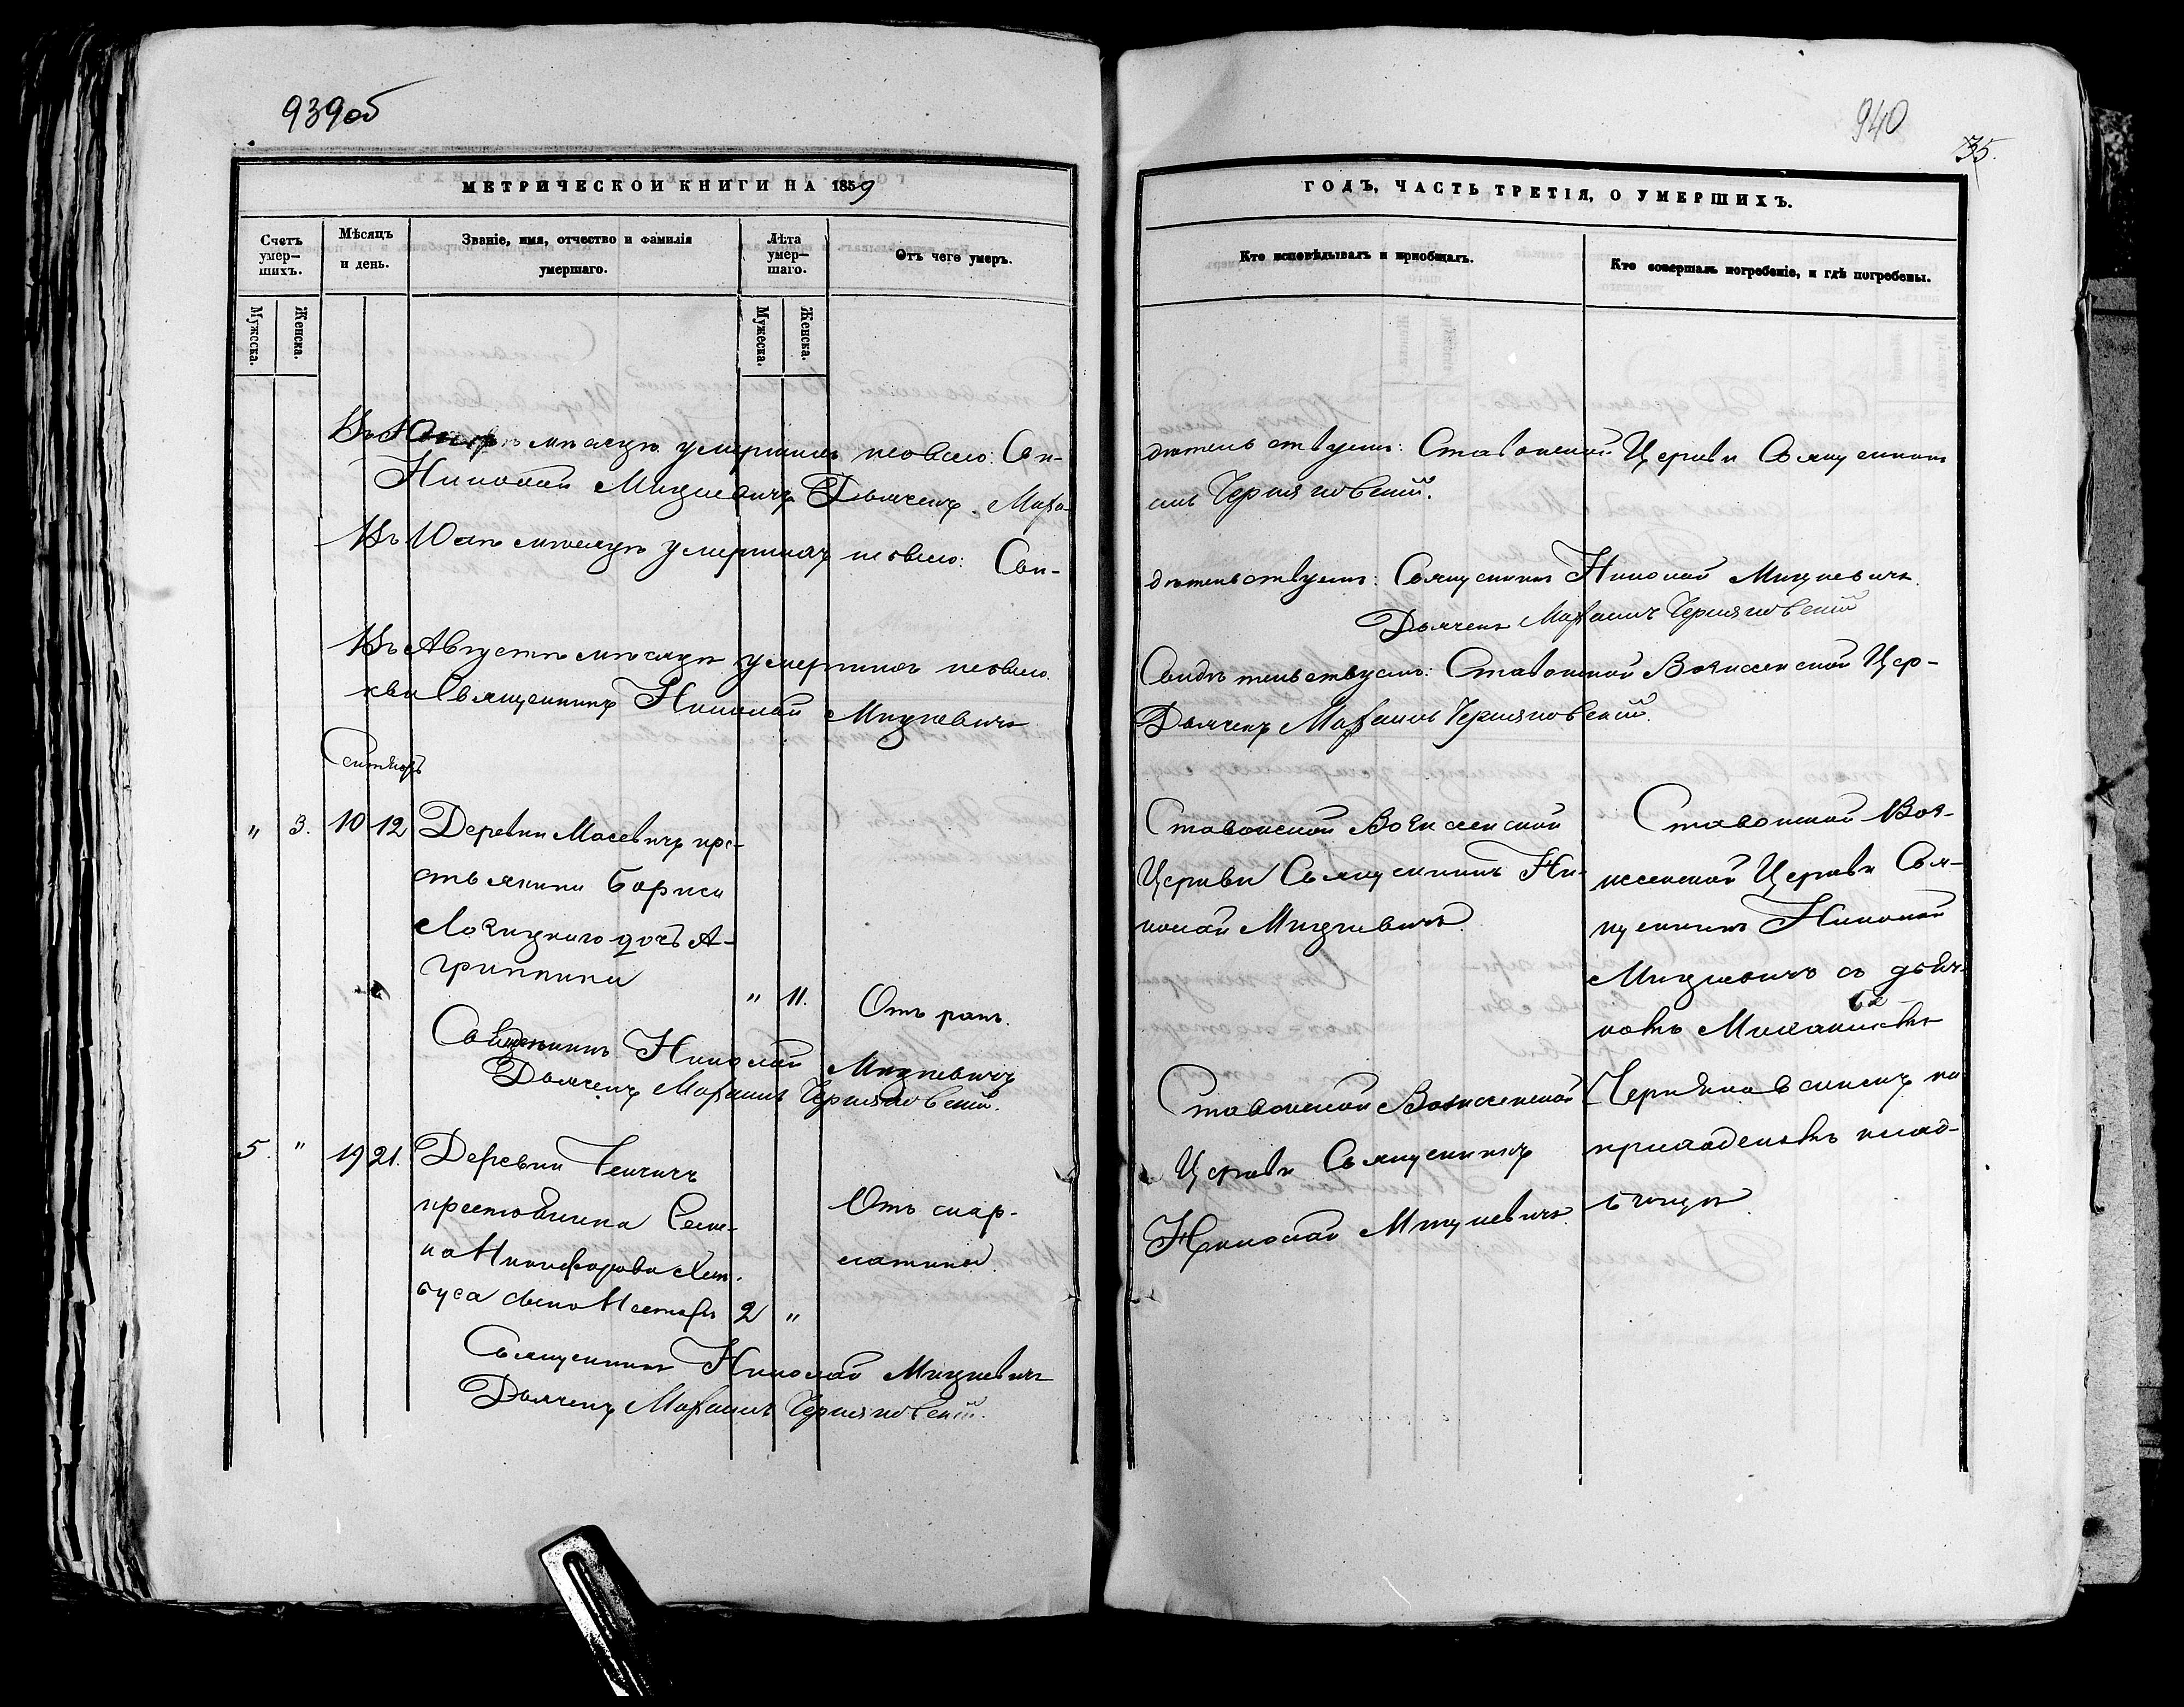 939об
МЕТРИЧЕСКОЙ КНИГИ НА 1859
Счетъ умер-шихъ.
Мѣсяцъ и день.
Званіе, имя, отчество и фамилія умершаго.
Лѣта умер-шаго.
Отъ чего умеръ.
Мужеска.
Женска.
Мужеска.
Женска.
мѣсяцѣ умершихъ небыло. Сви-
Николай Мицкевичъ Дьячекъ Мих
Въ Юлѣ мѣсяцѣ умершихъ небыло: Сви-
Въ Августѣ мѣсяцѣ умершихъ небыло.
кви Священникъ Николай Мицкевичъ
Сентябрь
" 3. 10 12 Деревни Масевичъ кре-
стьянина Бориса
дочь А-
грипина
" 11. Отъ ранъ.
Священникъ Николай Мицкевичъ
Дьячекъ Черняховскій.
5 " 19 21. Деревни
крестьянина Семе-
на Никифорова
сына Нестеръ 2 "
Отъ скар-
латины.
Священникъ Николай Мицкевичъ
Дьячекъ Черняховскій.
940
35.
ГОДЪ, ЧАСТЬ ТРЕТІЯ, О УМЕРШИХЪ.
Кто исповѣдывалъ и пріобщалъ.
Кто совершалъ погребеніе, и гдѣ погребены.
дѣтельствуютъ: Ставокской Церкви Священникъ
Черняховскій.
дѣтельствуютъ: Священникъ Николай Мицкевичъ.
Дьячекъ Черняховскій
Свидѣтельствуютъ: Ставокской Вознесенской Цер-
Дьячекъ Черняховскій.
Ставокской Вознесенской
Церкви Священникъ Ни-
колай Мицкевичъ.
Ставокской Воз-
несенской Церкви Свя-
щенникъ Николай
Мицкевичъ съ дьяч-
комъ
Черняховскимъ на
приходскомъ клад-
бищѣ
Ставокской Вознесенской
Церкви Священникъ
Николай Мицкевичъ.